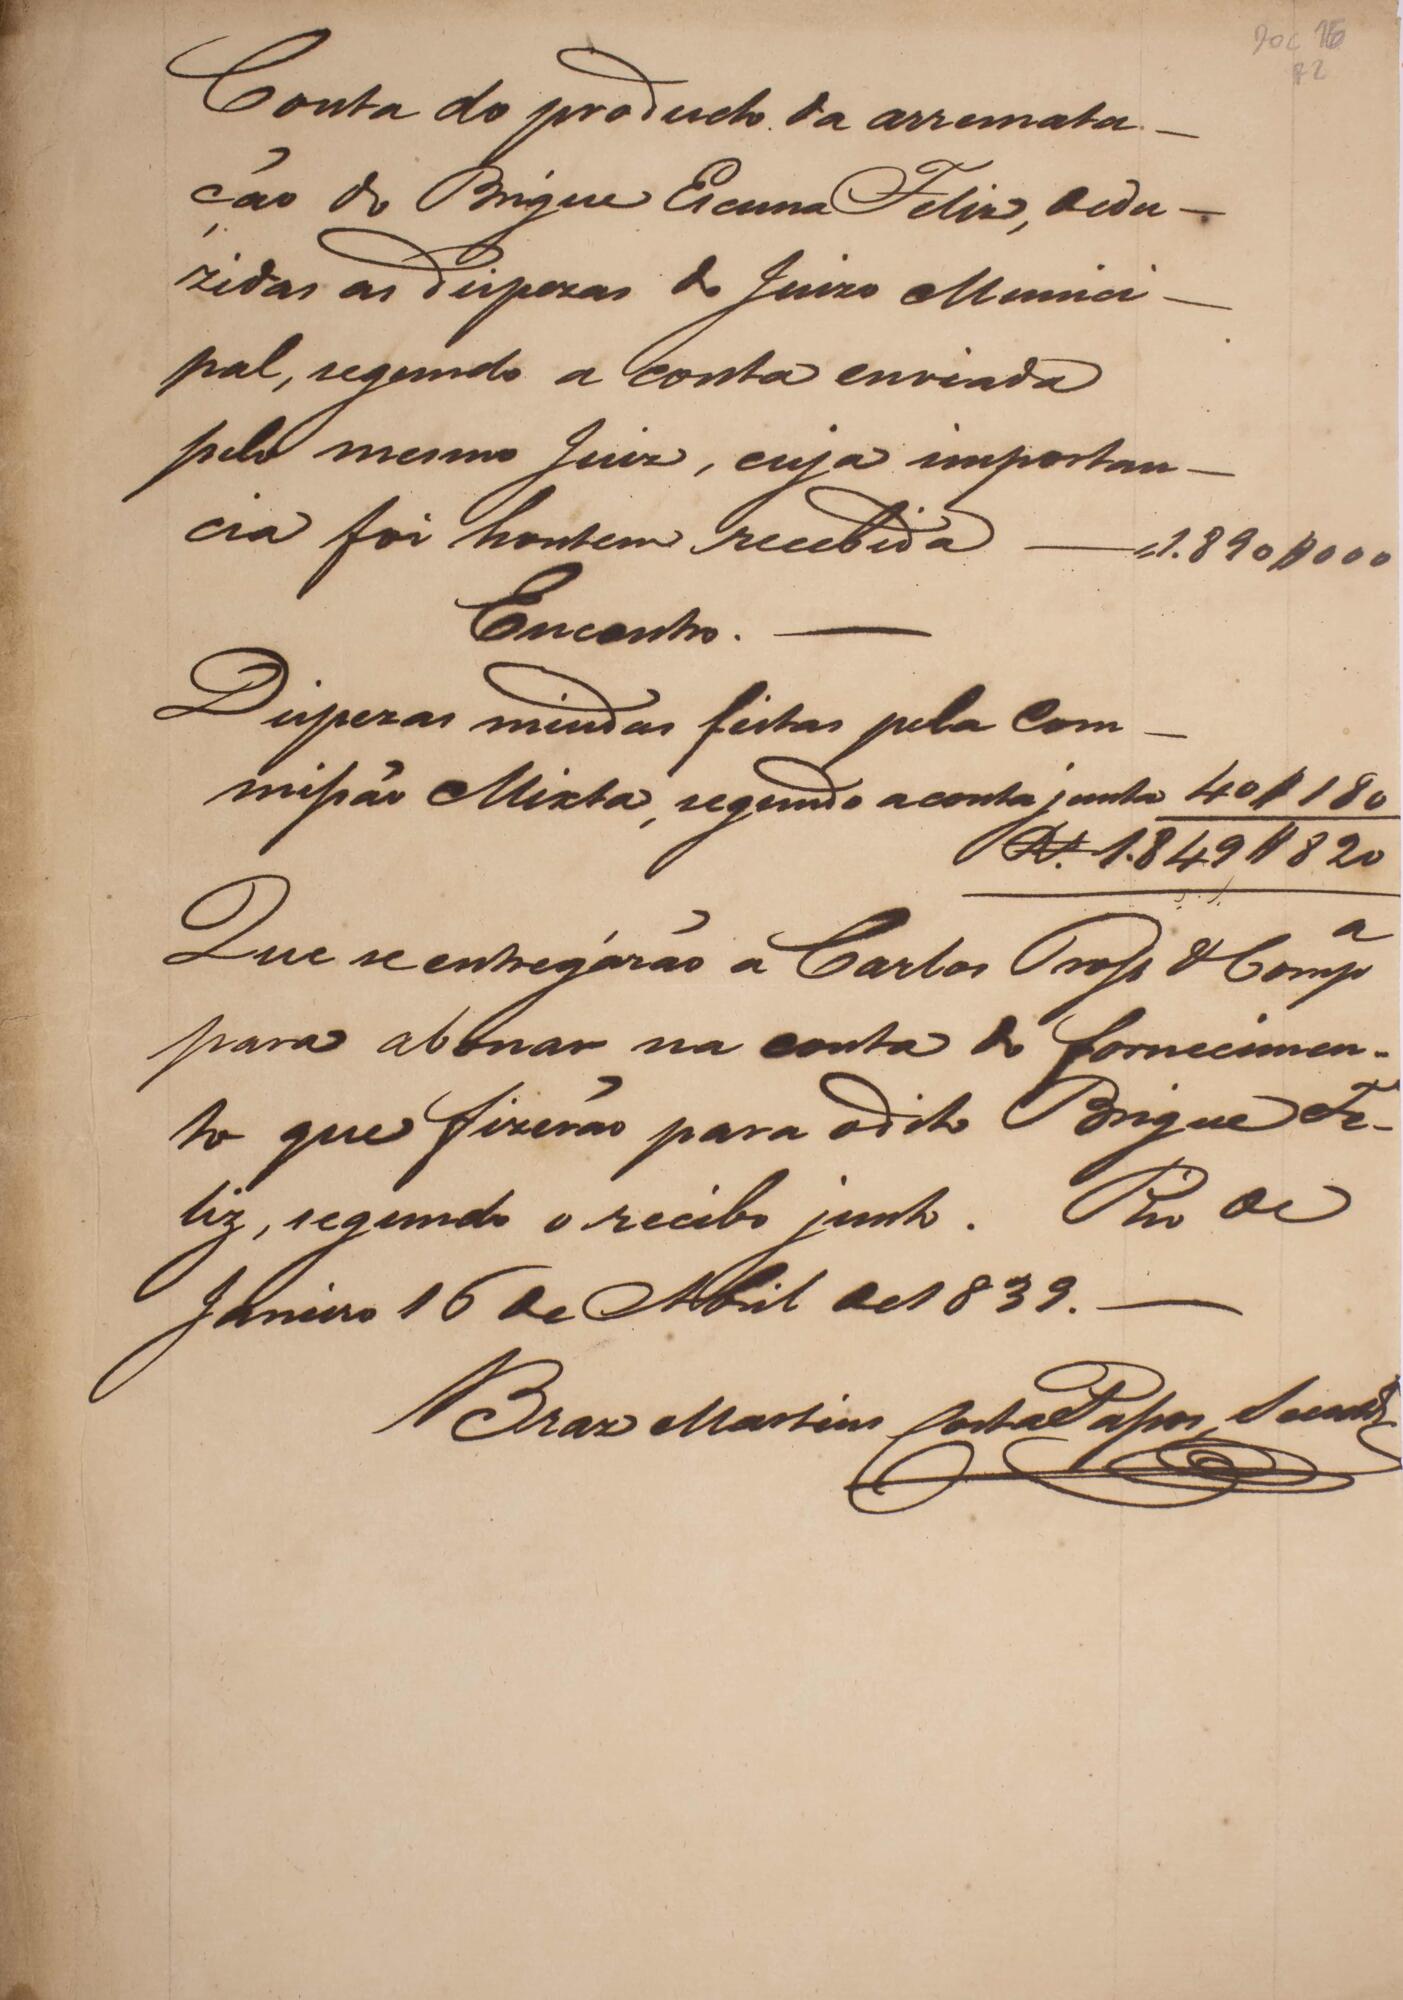 Doc 16
82
Conta do producto da arremata-
ção do Brigue Escuna Feliz, dedu-
zidas as dispezas do Juizo Munici-
pal, segundo a conta enviada
pelo mesmo Juiz, cuja importan-
cia foi hontem recebida — 1.890$000
Encontro. —
Dispezas miudas feitas pela Com-
missão Mixta, segundo a conta junta 40$180
Rs. 1.849$820
Que se entregárão a Carlos & Comp.a
para abonar na conta do fornecimen-
to que fizerão para o dito Brigue Fe-
liz, segundo o recibo junto. Rio de
Janeiro 16 de Abril de 1839. —
Braz Martins Costa Passos, Secretr.